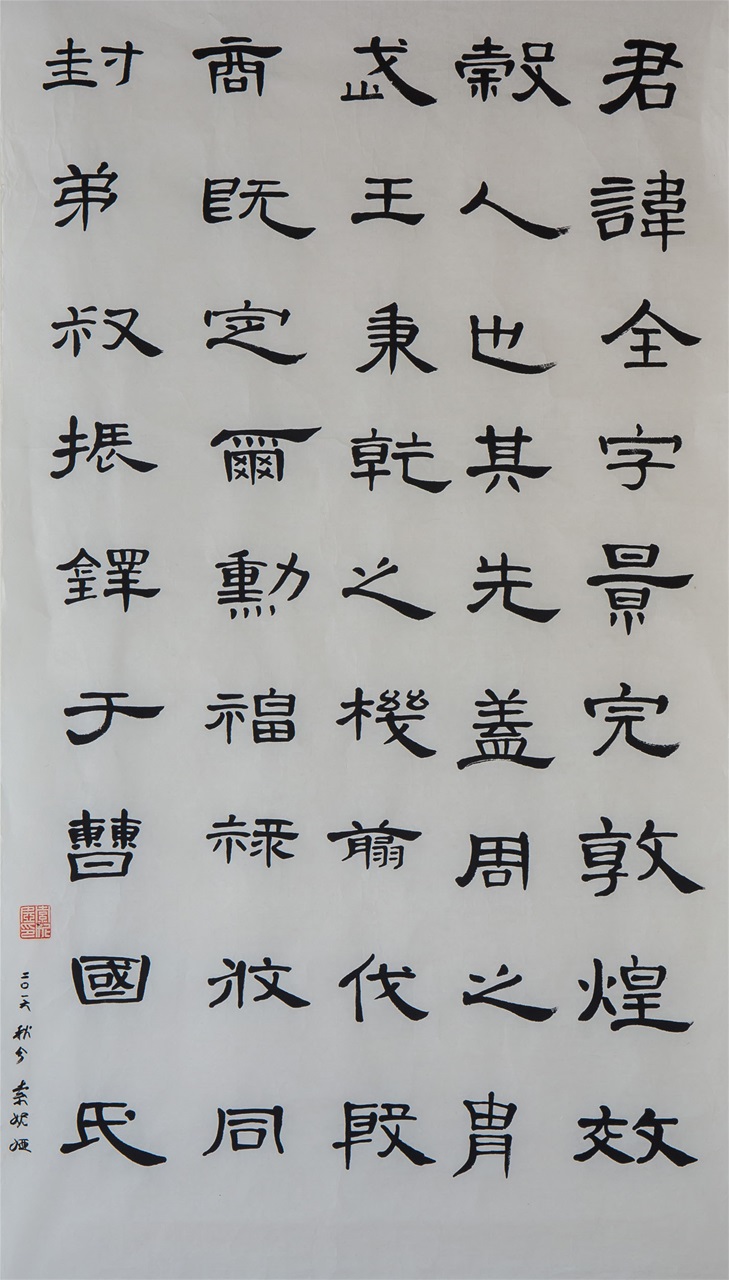 君諱全字景完敦煌效
穀人也其先盖周之胄
武王秉乾之機翦伐殷
商既定爾勳福祿攸同
封弟叔振鐸于曹國氏
二〇一六 秋 索妮娅